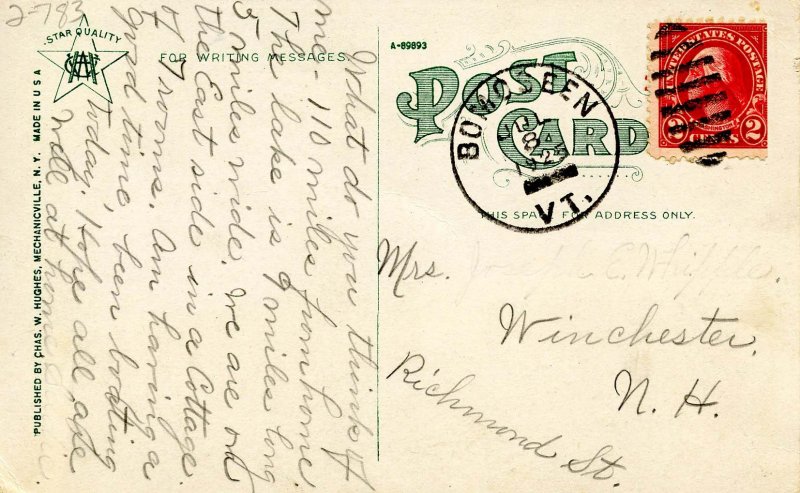 2-783
STAR QUALITY
FOR WRITING MESSAGES.
PUBLISHED BY CHAS. W. HUGHES, MECHANICVILLE, N. Y. MADE IN U S A
What do you think of
me - 110 miles from home.
The lake is 9 miles long
5 miles wide. We are on
the East side in a Cottage
of 7 rooms. Am having a
good time, been boating
today. Hope all are
well at home
A-89893
POST CARD
BOMOSEEN
VT.
UNITED STATES POSTAGE
WASHINGTON
2 CENTS 2
THIS SPACE FOR ADDRESS ONLY.
Mrs. Joseph C. Whipple.
Winchester.
N. H.
Richmond St.